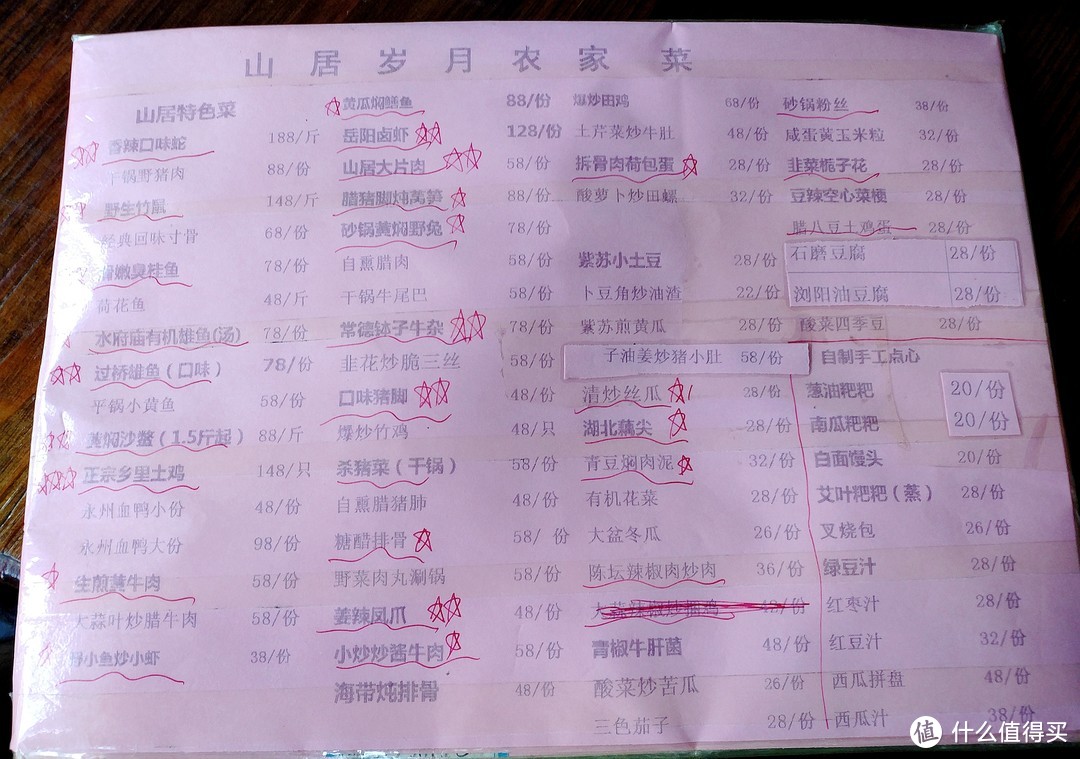 山居岁月农家菜
山居特色菜
香辣口味蛇 188/斤
干锅野猪肉 88/份
野生竹鼠 148/斤
经典回味寸骨 68/份
滑嫩臭桂鱼 78/份
荷花鱼 48/斤
水府庙有机雄鱼(汤) 78/份
过桥雄鱼(口味) 78/份
平锅小黄鱼 58/份
黄焖沙鳖(1.5斤起) 88/斤
正宗乡里土鸡 148/只
永州血鸭小份 48/份
永州血鸭大份 98/份
生煎黄牛肉 58/份
大蒜叶炒腊牛肉 58/份
小鱼炒小虾 38/份
黄瓜焖鳝鱼 88/份
岳阳卤虾 128/份
山居大片肉 58/份
腊猪脚炖莴笋 88/份
砂锅黄焖野兔 78/份
自熏腊肉 58/份
干锅牛尾巴 58/份
常德钵子牛杂 78/份
韭花炒脆三丝 58/份
口味猪脚 48/份
爆炒竹鸡 48/只
杀猪菜(干锅) 58/份
自熏腊猪肺 48/份
糖醋排骨 58/份
野菜肉丸涮锅 58/份
姜辣凤爪 48/份
小炒炒酱牛肉 58/份
海带炖排骨 48/份
爆炒田鸡 68/份
土芹菜炒牛肚 48/份
拆骨肉荷包蛋 28/份
酸萝卜炒田螺 32/份
紫苏小土豆 28/份
卜豆角炒油渣 22/份
紫苏煎黄瓜 28/份
子油姜炒猪小肚 58/份
清炒丝瓜 28/份
湖北藕尖 28/份
青豆焖肉泥 32/份
有机花菜 28/份
大盆冬瓜 26/份
陈坛辣椒肉炒肉 36/份
青椒牛肝菌 48/份
酸菜炒苦瓜 26/份
三色茄子 28/份
砂锅粉丝 38/份
咸蛋黄玉米粒 32/份
韭菜栀子花 28/份
豆辣空心菜梗 28/份
腊八豆土鸡蛋 28/份
石磨豆腐 28/份
浏阳油豆腐 28/份
酸菜四季豆 28/份
自制手工点心
葱油粑粑 20/份
南瓜粑粑 20/份
白面馒头 20/份
艾叶粑粑(蒸) 28/份
叉烧包 26/份
绿豆汁 28/份
红枣汁 28/份
红豆汁 32/份
西瓜拼盘 48/份
西瓜汁 38/份
值 什么值得买